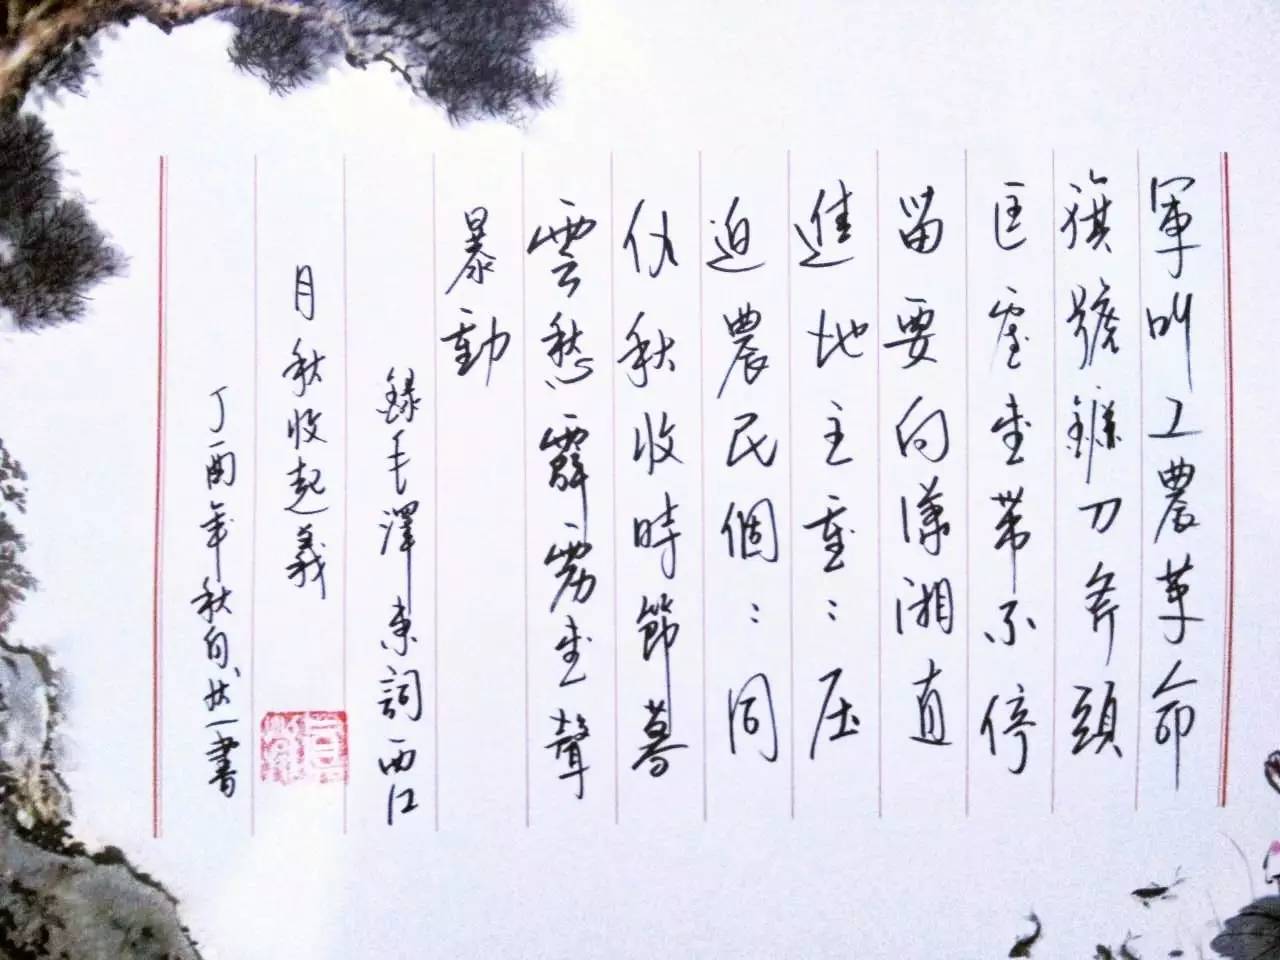 軍叫工農革命
旗號鐮刀斧頭
匡廬壹帶不停
留要向瀟湘直
進地主重：压
迫農民個：同
仇秋收時節暮
雲愁霹靂壹聲
暴動
錄毛澤東詞西江
月秋收起義
丁酉年秋書